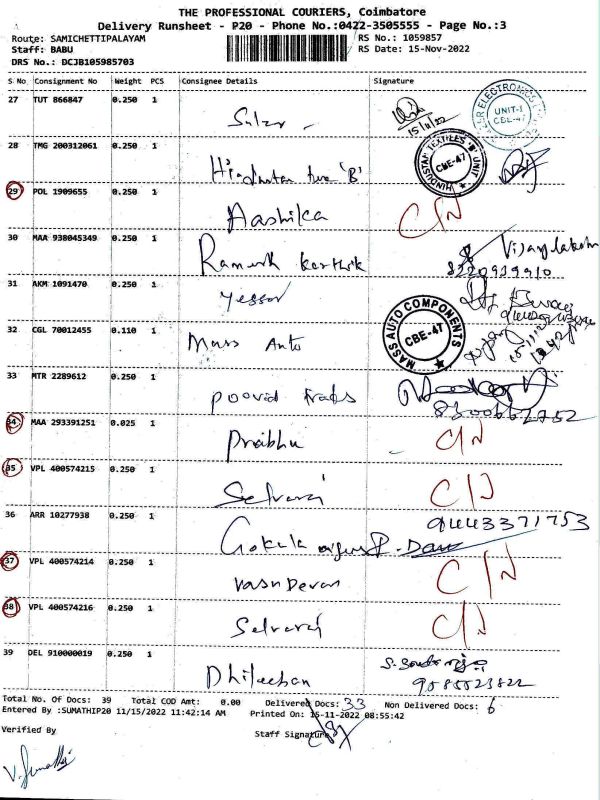 THE PROFESSIONAL COURIERS, Coimbatore
Delivery Runsheet - P20 - Phone No.:0422-3505555 - Page No.:3
Route: SAMICHETTIPALAYAM RS No.: 1059857
Staff: BABU RS Date: 15-Nov-2022
DRS No.: DCJB105985703
S No Consignment No Weight PCS Consignee Details Signature
27 TUT 866847 0.250 1 15/11/22 ELECTRONICS UNIT-1 CBE-47
28 TMG 200312061 0.250 1 Hindustan 'B' HINDUSTAN TEXTILES 'B' UNIT CBE-47
29 POL 1909655 0.250 1 Aashika C/N
30 MAA 938045349 0.250 1 Ramesh Karthik Vijayalakshmi
31 AKM 1091470 0.250 1
32 CGL 70012455 0.110 1 Mass Auto MASS AUTO COMPONENTS CBE-47
33 MTR 2289612 0.250 1
34 MAA 293391251 0.025 1 Prabhu C/N
35 VPL 400574215 0.250 1 Selvaraj C/N
36 ARR 10277938 0.250 1 9443371753
37 VPL 400574214 0.250 1 Vasudevan C/N
38 VPL 400574216 0.250 1 Selvaraj C/N
39 DEL 910000019 0.250 1
Total No. Of Docs: 39 Total COD Amt: 0.00 Delivered Docs: 33 Non Delivered Docs: 6
Entered By :SUMATHIP20 11/15/2022 11:42:14 AM Printed On: 15-11-2022 08:55:42
Verified By Staff Signature